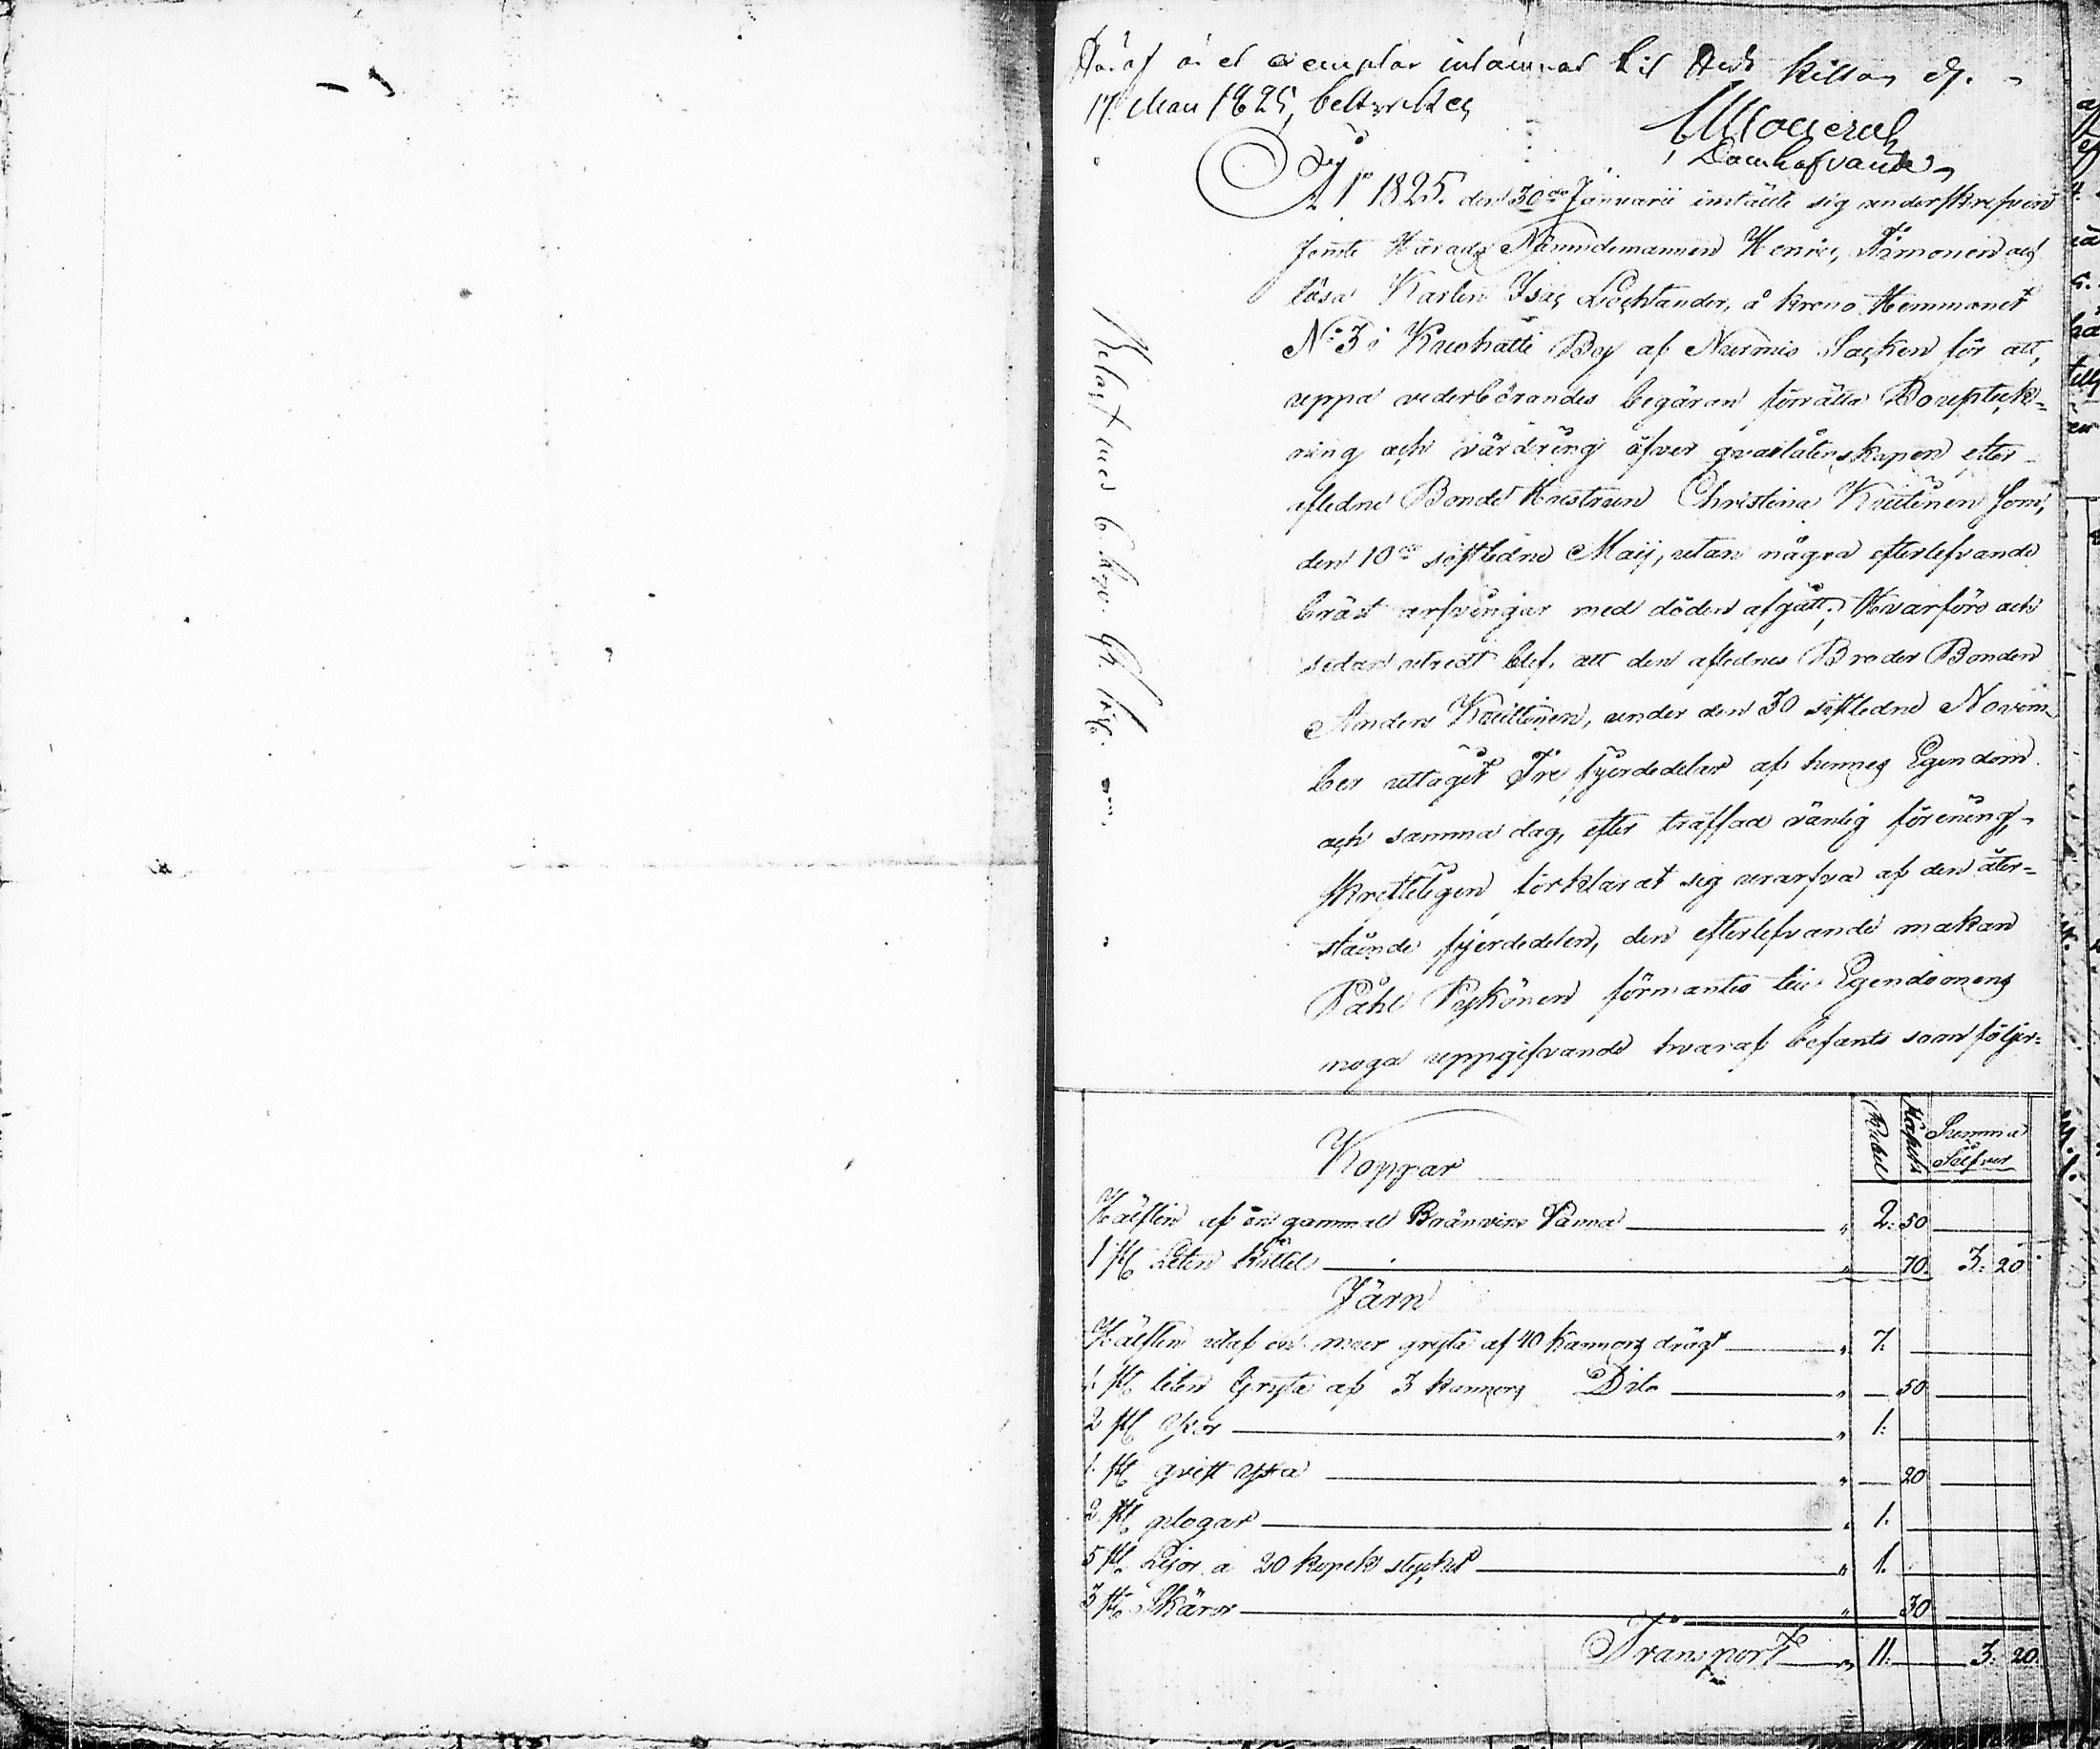 Häraf är et exemplar inlämnat til
17 Mars 1825, betyrkes
År 1825. den 30de Januarii instälte sig underskrefven
jemte Härads Nämndemannen Henric Timonen och
lösa Karlen Isac Lochtander, å krono Hemmanet
No 3 i Kuohatti By af Nurmis Socken för att,
uppå vederbörandes begäran förrätta Boupteck-
ning och värdering öfver qvarlåtenskapen efter
afledne Bonde Hustrun Christina Kuittinen som,
den 10de sistledne Maij, utan några efterlefvande
bröst arfvingar med döden afgått; Hvarföre och
sedan utredt blef, att den aflednes Broder Bonden
Anders Kuittinen, under den 30 sistledne Novem-
ber uttagit Tre fjerdedelar af hennes Egendom
och samma dag, efter träffad vänlig förening,
skrifteligen förklarat sig urarfva af den åter-
stående fjerdedelen, den efterlefvande makan
Påhl Pyykönen förmantes till Egendomens
noga uppgifvande hvaraf befants som följer:
Rubel Kopek Summa
Silfver
Koppar
Hälften af en gammal Bränvins Panna " 2: 50
1 st. liten kittel " 70. 3: 20
Järn
Hälften utaf en mur gryta af 40 kannors drägt " 7.
1. st. liten Gryta af 3 kannors Dito " 50
2 st. yxor " 1:
1. st. qvist yxa " 20
2 st. plogar " 1.
5 st. Lijor a 20 kopek stycket " 1.
3 st. Skäror " 30
Transport " 11. 3: 20.